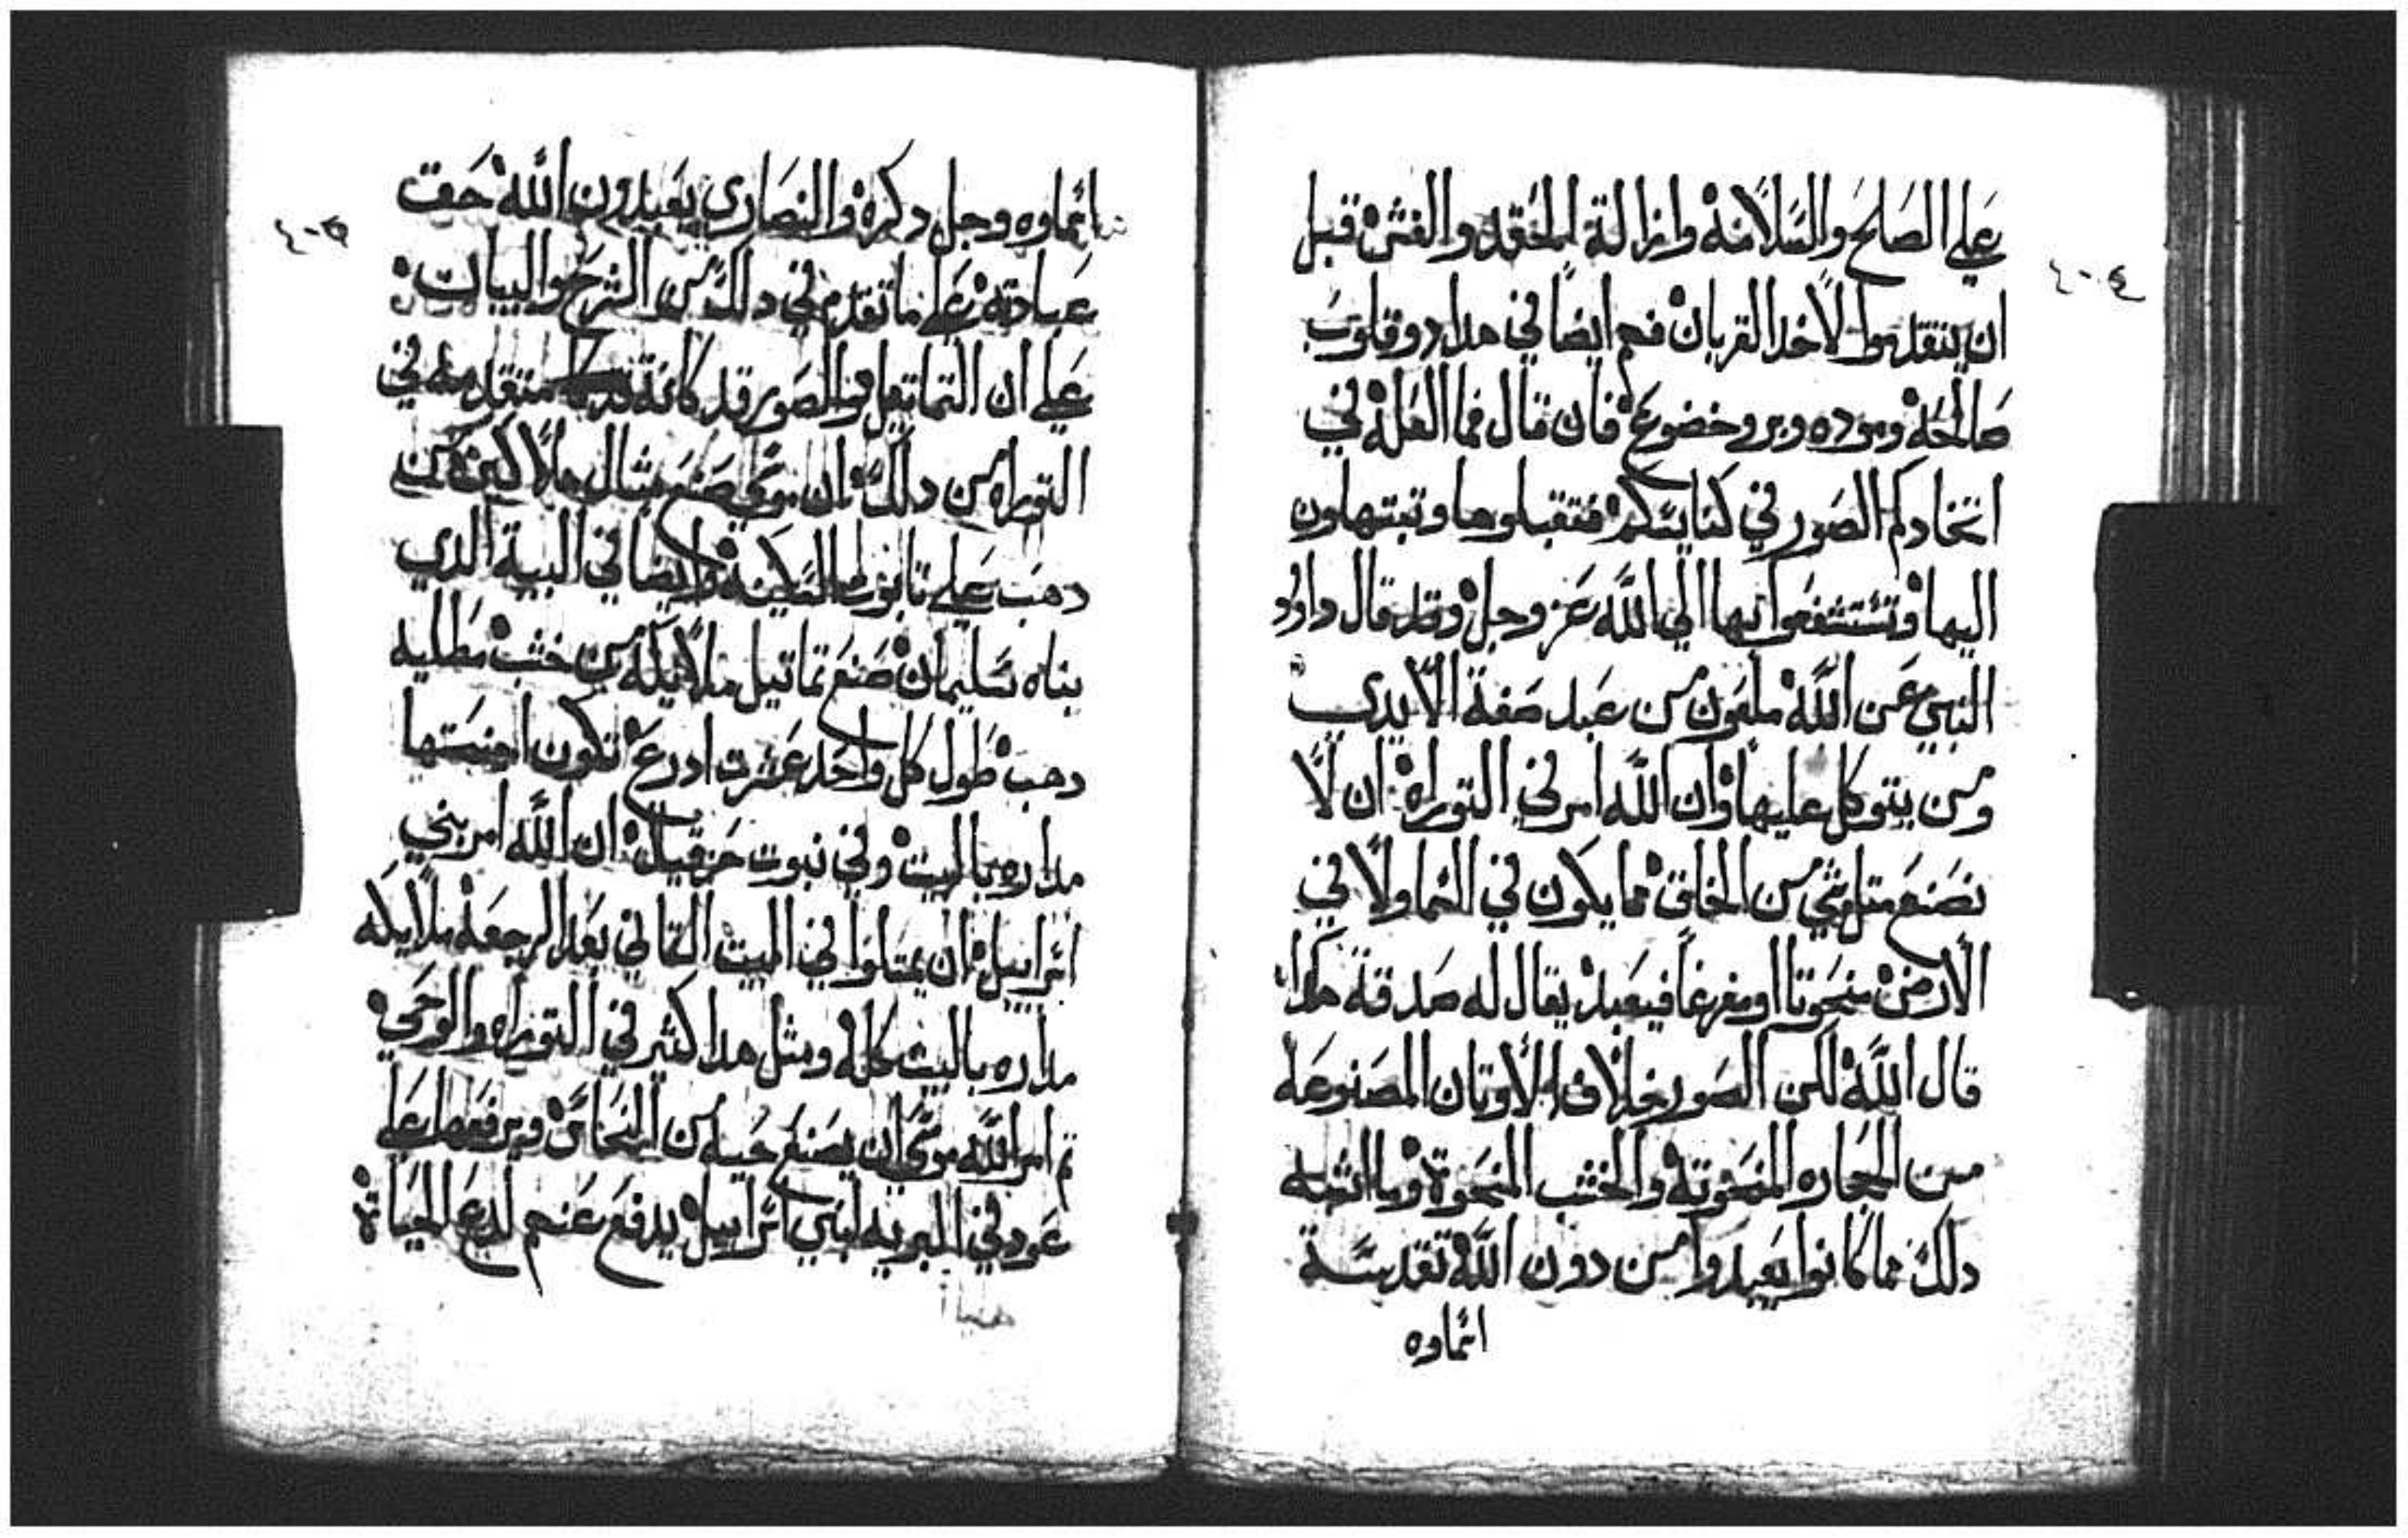 ٤٠٤
علي الصلح والسلامه وازالة الحقد والغش قبل
ان يتقدموا لاخد القربان فهم ايضا في هدا دو قلوب
صالحه ومؤده وبر وخضوع فان قال فما العله في
اتخادكم الصور في كنايسكم فتقبلوها وتبتهلون
اليها وتستشفعوا بها الي الله عز وجل وقد قال داود
النبي عن الله ملعون من عبد صفة الايدي
ومن يتوكل عليها وان الله امر في التوراه ان لا
نصنع مثل شي من الخلق مما يكون في السما ولا في
الارض منحوتا او مفرغا فيعبد يقال له صدقة هكدا
قال الله لكن الصور خلاف الاوتان المصنوعه
من الحجاره المنحوته والخشب المنحوة وما اشبه
دلك مما كانوا يعبدوا من دون الله تقدست
اسماوه
٤٠٥
اسماوه وجل دكره والنصاري يعبدون الله حق
عبادته علي ما تقدم في دلك من الشرح والبيان
علي ان التماتيل والصور قد كانة متقدمه في
التوراه من دلك ان موسي صنع مثال ملاكين من
دهب علي تابوت السكينه وايضا في البية الدي
بناه سليمان صنع تماتيل ملايكه من خشب مطليه
دهب طول كل واحد عشرت ادرع تكون اجنحتها
مداره بالبيت وفي نبوت حزقيل ان الله امر بني
اسراييل ان يمتلوا في البيت التاني بعد الرجعه ملايكه
مداره بالبيت كله ومثل هدا كثير في التوراه والوحي
تم امر الله موسي ان يصنع حيه من النحاس ويرفعها علي
عود في البريه لبني اسراييل يدفع عنهم لدع الحياة